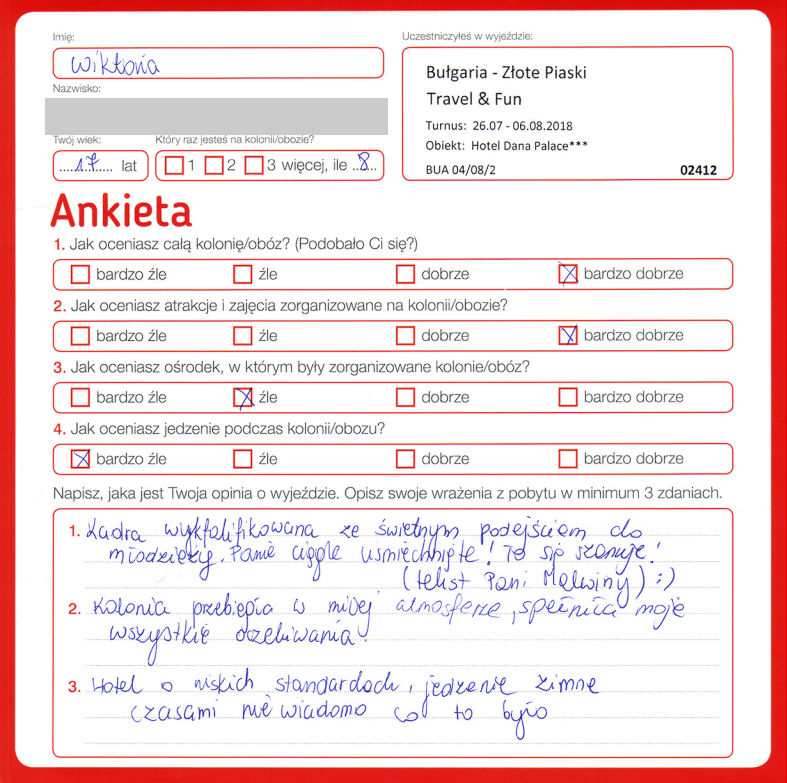 Imię:
Wiktoria
Nazwisko:
Twój wiek:
....17.... lat
Który raz jesteś na kolonii/obozie?
1 2 3 więcej, ile ..8..
Uczestniczyłeś w wyjeździe:
Bułgaria - Złote Piaski
Travel & Fun
Turnus: 26.07 - 06.08.2018
Obiekt: Hotel Dana Palace***
BUA 04/08/2 02412
Ankieta
1. Jak oceniasz całą kolonię/obóz? (Podobało Ci się?)
bardzo źle źle dobrze bardzo dobrze
2. Jak oceniasz atrakcje i zajęcia zorganizowane na kolonii/obozie?
bardzo źle źle dobrze bardzo dobrze
3. Jak oceniasz ośrodek, w którym były zorganizowane kolonie/obóz?
bardzo źle źle dobrze bardzo dobrze
4. Jak oceniasz jedzenie podczas kolonii/obozu?
bardzo źle źle dobrze bardzo dobrze
Napisz, jaka jest Twoja opinia o wyjeździe. Opisz swoje wrażenia z pobytu w minimum 3 zdaniach.
1. Kadra wykfalifikowana ze świetnym podejściem do
młodzieży. Panie ciągle uśmiechnięte! To się szanuje!
(tekst Pani Malwiny) :)
2. Kolonia przebiegła w miłej atmosferze, spełniła moje
wszystkie oczekiwania.
3. Hotel o niskich standardach, jedzenie zimne
czasami nie wiadomo co to było